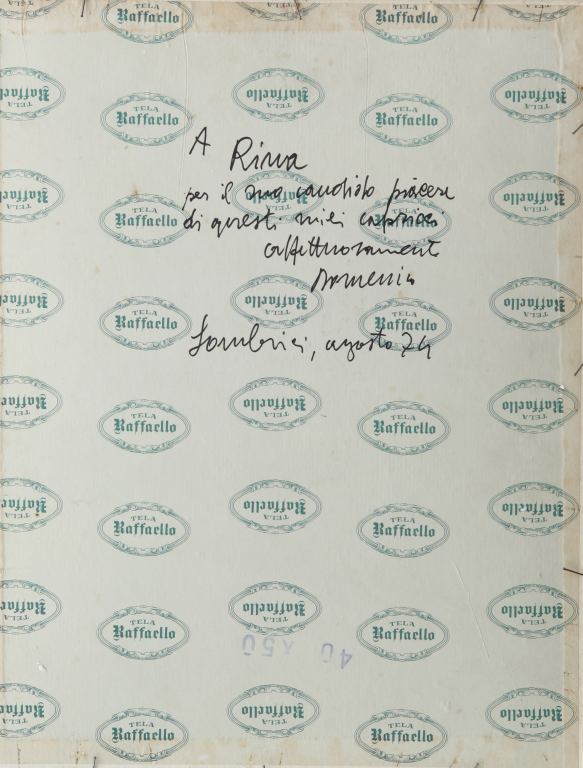 TELA Raffaello
A Rina
per il suo candido piacere
di questi miei capricci
affettuosamente
Domenico
agosto 74
40 x 50